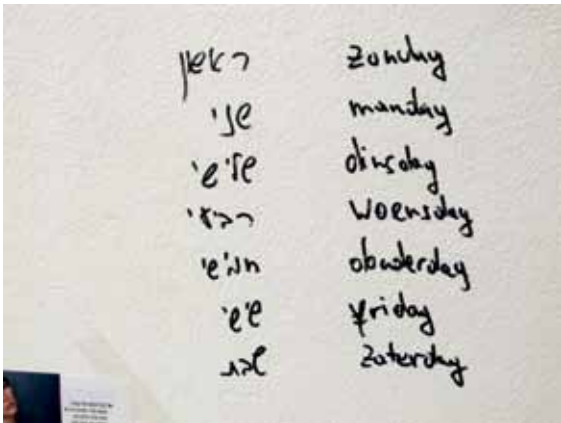 ראשון Zonday
שני manday
שלישי dinsday
רביעי Woensday
חמישי donderday
שישי friday
שבת Zaterday